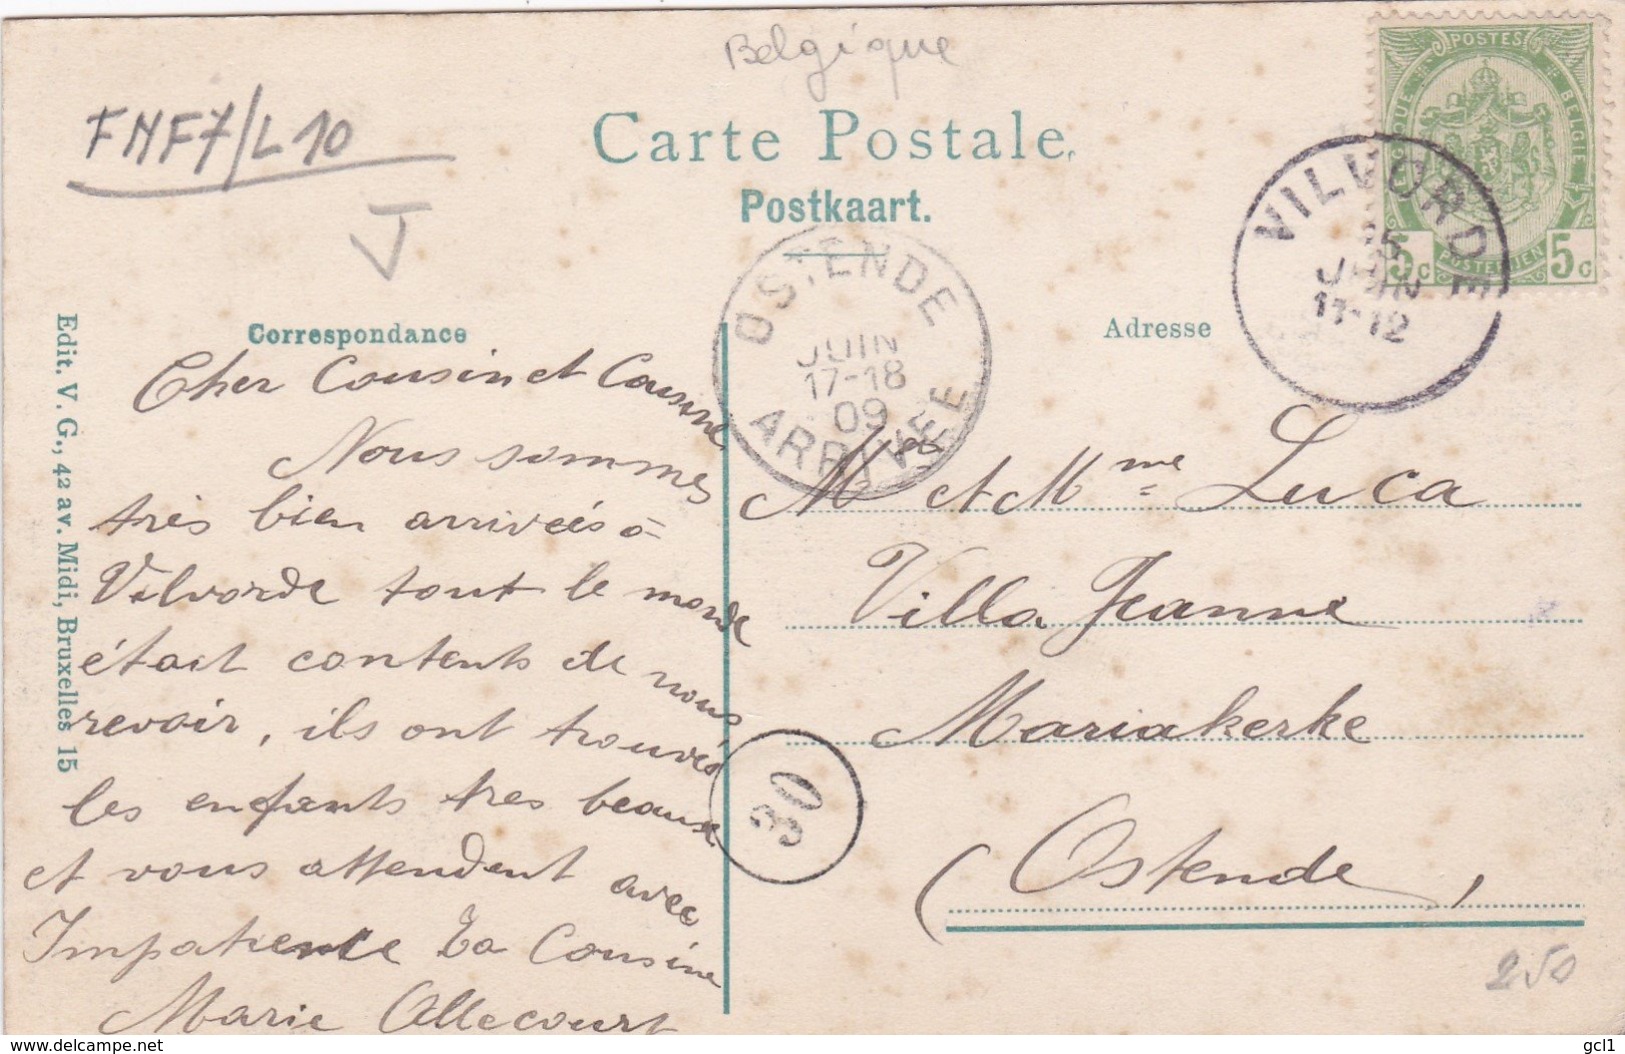 Belgique
FNF7/L10
J
Carte Postale.
Postkaart.
POSTES
BELGIQUE
BELGIE
POSTERIJEN
5c
5c
VILVORDE
15
JUIN
11-12
OSTENDE
JUIN
17-18
09
ARRIVEE
Correspondance
Adresse
Cher Cousin et Cousine
Nous sommes
très bien arrivéés à
Vilvorde tout le monde
était contents de nous
revoir, ils ont trouvés
les enfants tres beaux
et vous attendent avec
Impatience Ta Cousine
Marie Allecourt
Mr et Mme Luca
Villa Jeanne
Mariakerke
(Ostende,
30
250
Edit. V. G., 42 av. Midi, Bruxelles 15
www.delcampe.net
gcl1